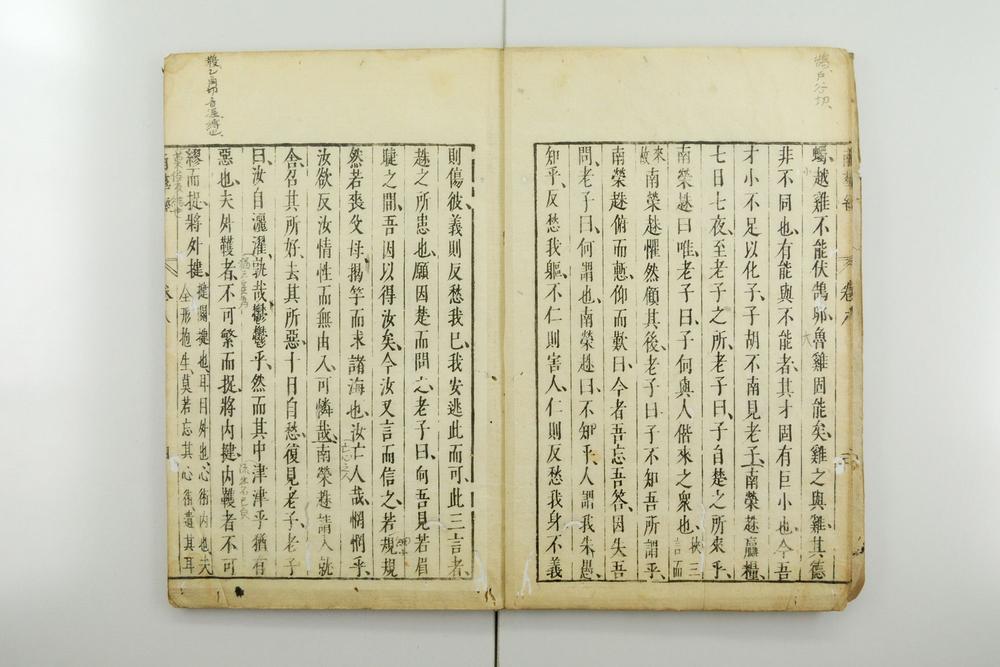 鵠戶谷切
蠋、越雞不能伏鵠卵、魯雞固能矣、雞之與雞、其德
非不同也、有能與不能者、其才固有巨小也、今吾
才小不足以化子、子胡不南見老子、南榮趎贏糧、
七日七夜、至老子之所、老子曰、子自楚之所來乎、
南榮趎曰、唯、老子曰、子何與人偕來之衆也、挾三言而
來故南榮趎懼然顧其後、老子曰、子不知吾所謂乎、
南榮趎俯而慙、仰而歎曰、今者吾忘吾答、因失吾
問、老子曰、何謂也、南榮趎曰、不知乎、人謂我朱愚、
知乎、反愁我軀、不仁則害人、仁則反愁我身、不義
則傷彼、義則反愁我已、我安逃此而可、此三言者、
趎之所患也、願因楚而問之、老子曰、向吾見若眉
睫之間、吾因以得汝矣、今汝又言而信之、若規規
然若喪父母、揭竿而求諸海也、汝亡人哉、惘惘乎、
汝欲反汝情性而無由入、可憐哉、南榮趎請入就
舍、召其所好、去其所惡、十日自愁、復見老子、老子
曰、汝自灑濯、孰哉鬱鬱乎、然而其中津津乎猶有
惡也、夫外韄者、不可繁而捉、將內揵、內韄者不可
繆而捉、將外揵、揵關揵也、耳目外也、心術內也、夫
全形抱生、莫若忘其心術、遺其耳
卷八